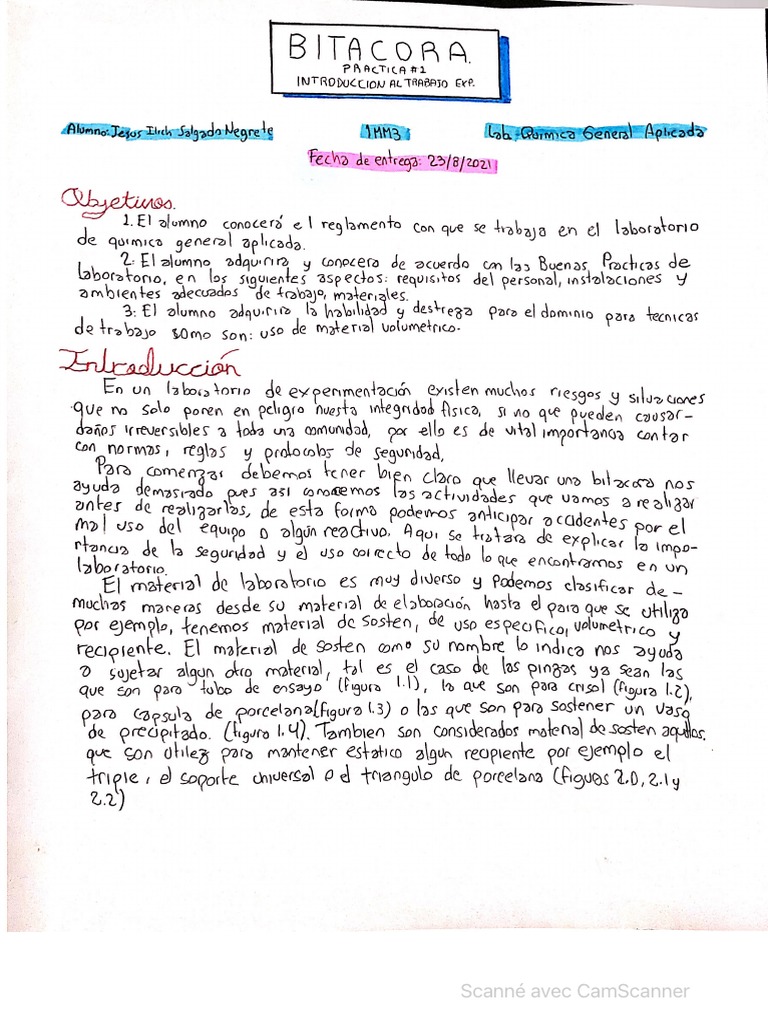 BITACORA.
PRACTICA #1
INTRODUCCION AL TRABAJO EXP.
Alumno: Jesus Ilich Salgado Negrete 1MM3 Lab. Quimica General Aplicada
Fecha de entrega: 23/8/2021
Objetivos.
1. El alumno conocerá el reglamento con que se trabaja en el laboratorio
de quimica general aplicada.
2. El alumno adquirira y conocera de acuerdo con las Buenas Practicas de
laboratorio, en los siguientes aspectos: requisitos del personal, instalaciones y
ambientes adecuados de trabajo, materiales.
3. El alumno adquirira la habilidad y destreza para el dominio para tecnicas
de trabajo somo son: uso de material volumetrico.
Introducción
En un laboratorio de experimentación existen muchos riesgos y situaciones
que no solo ponen en peligro nuesta integridad fisica, si no que pueden causar-
daños irreversibles a toda una comunidad, por ello es de vital importancia contar
con normas, reglas y protocolos de seguridad.
Para comenzar debemos tener bien claro que llevar una bitacora nos
ayuda demasiado pues asi conocemos las actividades que vamos a realizar
antes de realizarlas, de esta forma podemos anticipar accidentes por el
mal uso del equipo o algún reactivo. Aqui se tratara de explicar la impo-
rtancia de la seguridad y el uso correcto de todo lo que encontramos en un
laboratorio.
El material de laboratorio es muy diverso y podemos clasificar de-
muchas maneras desde su material de elaboración hasta el para que se utiliza
por ejemplo, tenemos material de sosten, de uso especifico, volumetrico y
recipiente. El material de sosten como su nombre lo indica nos ayuda
a sujetar algun otro material, tal es el caso de las pinzas ya sean las
que son para tubo de ensayo (figura 1.1), la que son para crisol (figura 1.2),
para capsula de porcelana(figura 1.3) o las que son para sostener un vaso
de precipitado. (figura 1.4). Tambien son considerados material de sosten aquellos.
que son utilez para mantener estatico algun recipiente por ejemplo el
triple, el soporte universal o el triangulo de porcelana (figuas 2.0, 2.1 y
2.2)
Scanné avec CamScanner